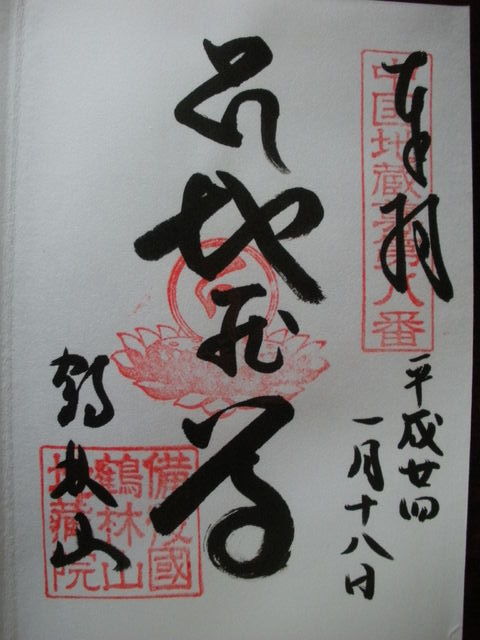 奉拝
中国地蔵尊第八番
平成廿四
一月十八日
地蔵尊
鶴林山
備後國
鶴林山
地藏院